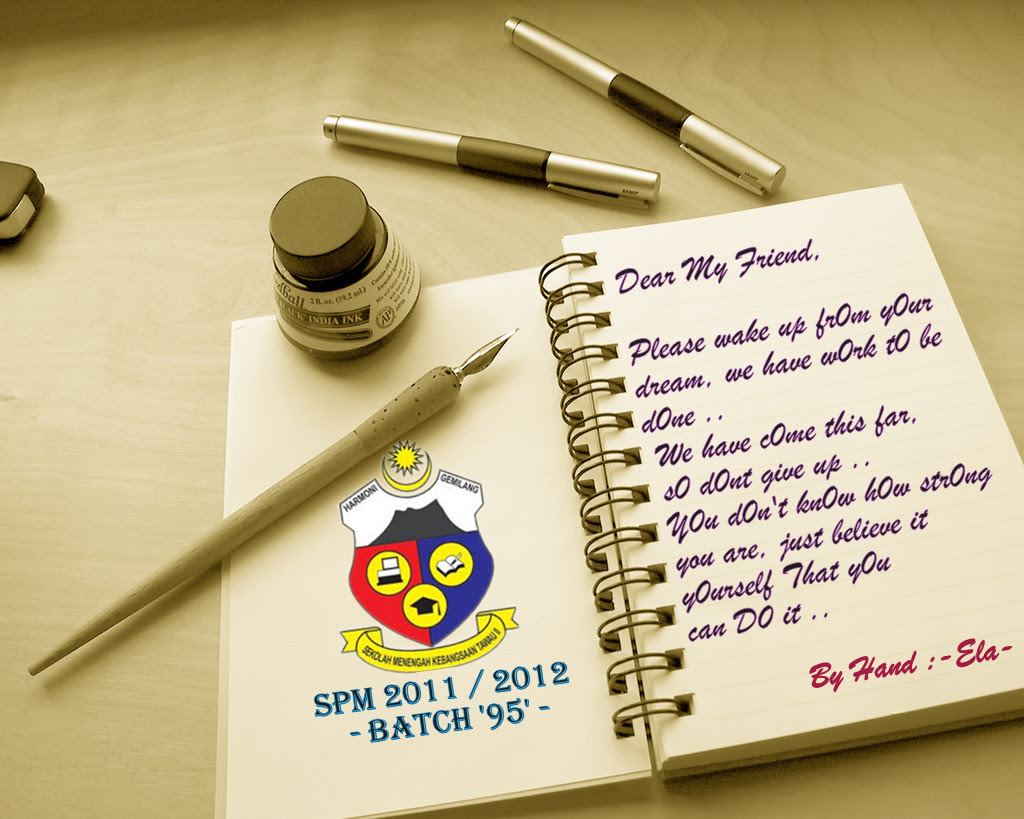 LAMY
LAMY
2 fl. oz. (59,2 mL)
INDIA INK
AP
HARMONI
GEMILANG
SEKOLAH MENENGAH KEBANGSAAN TAWAU II
SPM 2011 / 2012
- BATCH '95' -
Dear My Friend,
Please wake up frOm yOur
dream, we have wOrk tO be
dOne ..
We have cOme this far,
sO dOnt give up ..
YOu dOn't knOw hOw strOng
you are, just believe it
yOurself That yOu
can DO it ..
By Hand :-Ela-